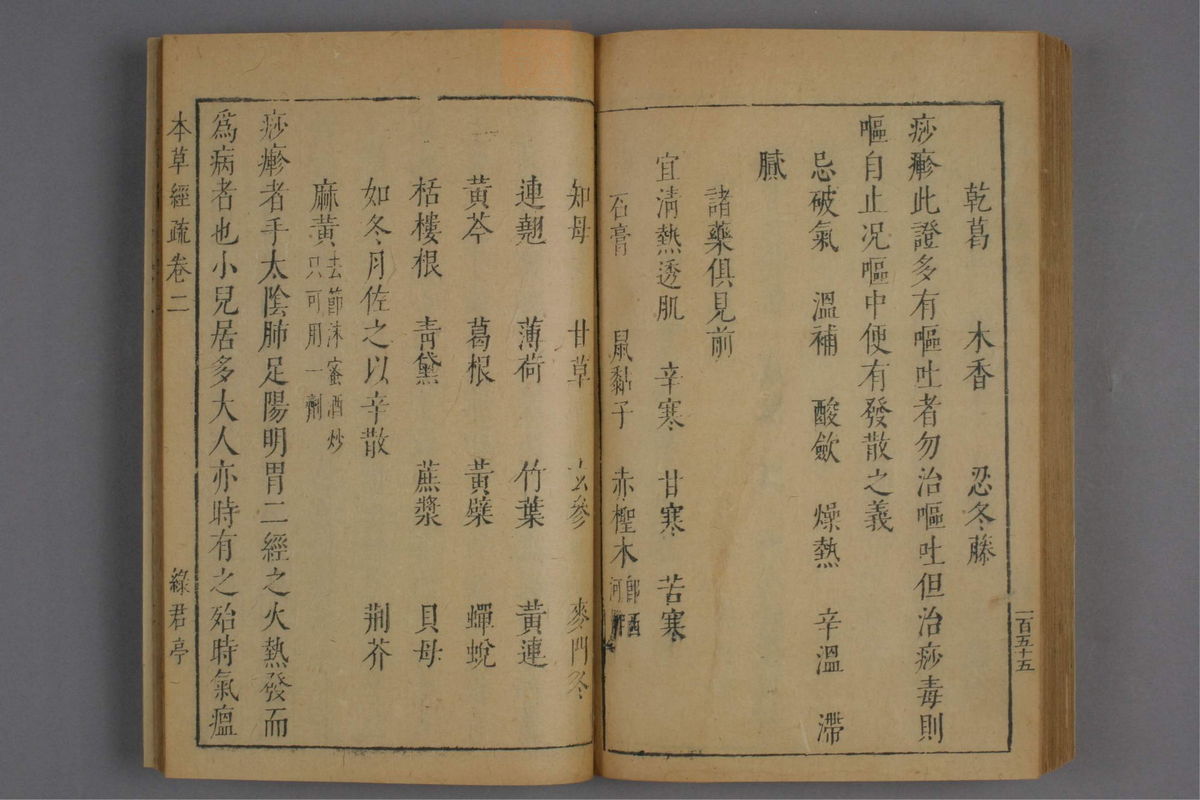 乾葛 木香 忍冬藤
痧瘮此證多有嘔吐者勿治嘔吐但治痧毒則
嘔自止况嘔中便有發散之義
忌破氣 溫補 酸歛 燥熱 辛溫 滯
膩
諸藥俱見前
宜清熱透肌 辛寒 甘寒 苦寒
石膏 鼠黏子 赤檉木
即西
河
一百五十五
知母 甘草 玄參 麥門冬
連翹 薄荷 竹葉 黃連
黃芩 葛根 黃蘗 蟬蛻
栝樓根 青黛 蔗漿 貝母
如冬月佐之以辛散 荆芥
麻黃
去節沫蜜酒炒
只可用一劑
痧瘮者手太陰肺足陽明胃二經之火熱發而
爲病者也小兒居多大人亦時有之殆時氣瘟
本草經疏卷二 綠君亭